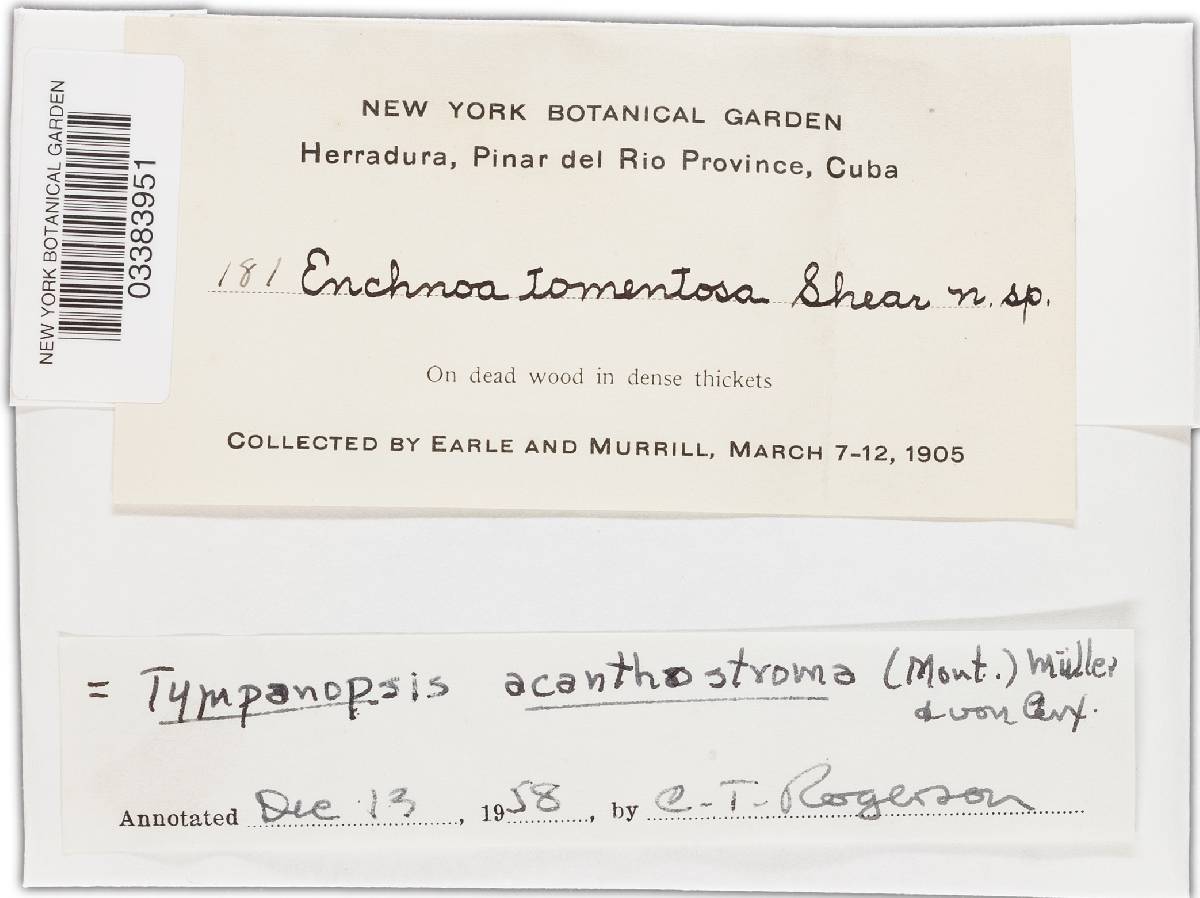 NEW YORK BOTANICAL GARDEN
03383951
NEW YORK BOTANICAL GARDEN
Herradura, Pinar del Rio Province, Cuba
181 Enchnoa tomentosa Shear n. sp.
On dead wood in dense thickets
COLLECTED BY EARLE AND MURRILL, MARCH 7-12, 1905
= Tympanopsis acanthostroma (Mont.) Müller
& von Arx.
Annotated Dec 13, 1958, by C. T. Rogerson